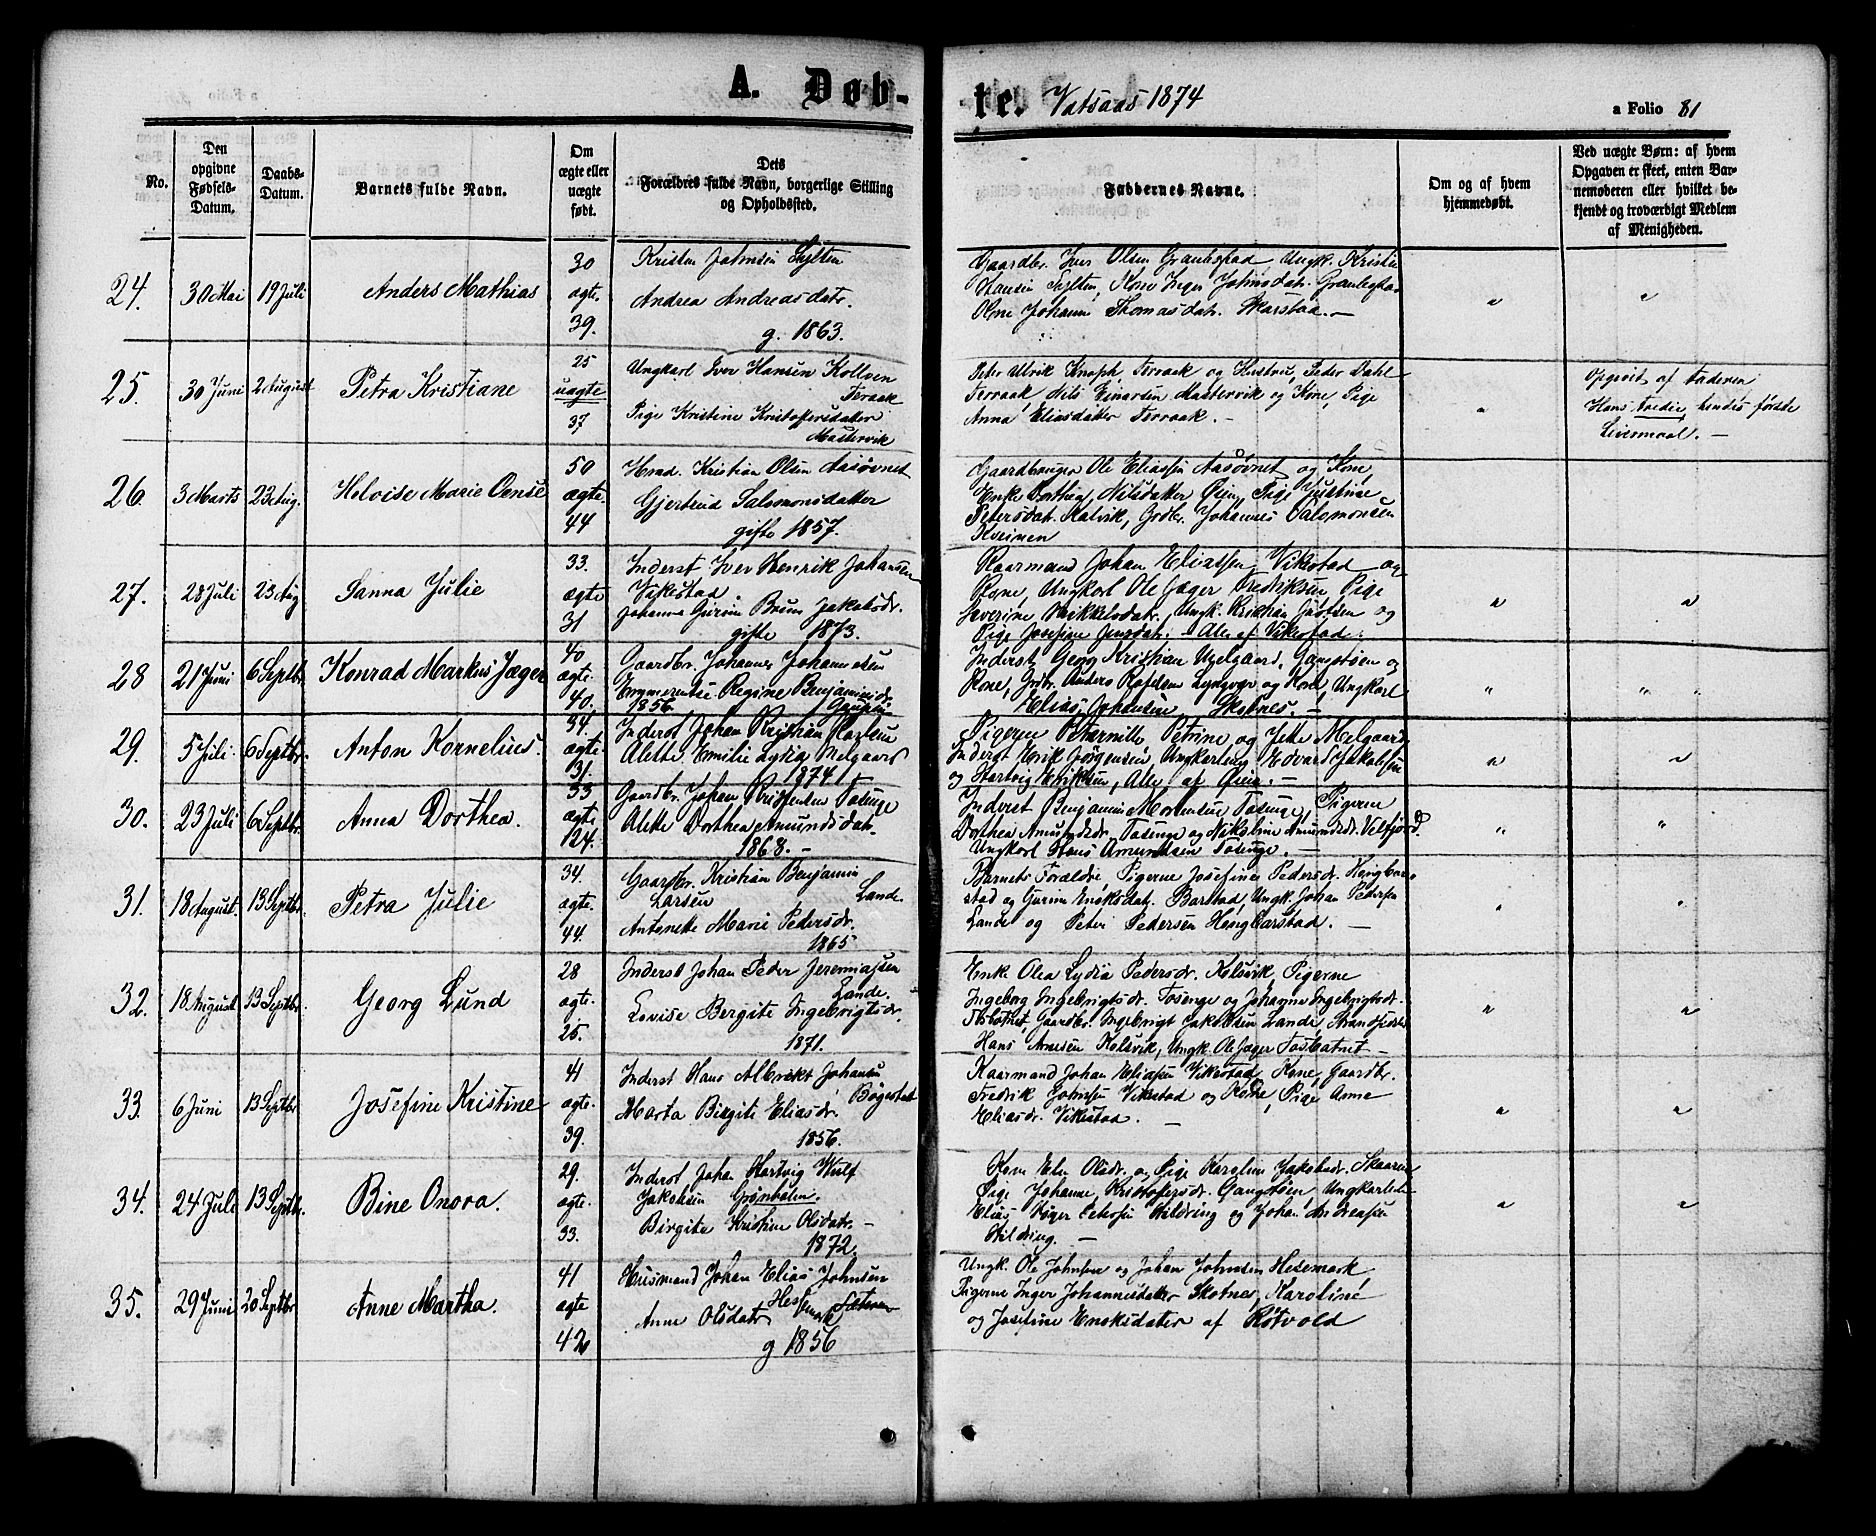 A. Døb-
te. Vatsaas 1874
a Folio 81
No.
Den opgivne Fødsels-Datum.
Daabs-Datum.
Barnets fulde Navn.
Om ægte eller uægte født.
Dets Forældres fulde Navn, borgerlige Stilling og Opholdssted.
Faddernes Navne.
Om og af hvem hjemmedøbt.
Ved uægte Børn: af hvem Opgaven er skeet, enten Barnemoderen eller hvilket bekjendt og troværdigt Medlem af Menigheden.
24. 30 Mai 19 Juli Anders Mathias
30 ægte. 39.
Kristen Johnsen Sylten
Andrea Andreasdatr.
g. 1863.
Gaardbr. Iver Olsen Ungk. Kristen
Hansen Sylten, Kone Inger Johnsdatr.
Kone Johanna Thomasdatr. Skarstad.
" "
25. 30 Juni 2 August Petra Kristiane
25 uægte 37
Ungkarl Iver Hansen Kollven
Terraak
Pige Kristine Kristofersdatter
Mastervik
Peter Ulrik Knoph, Terraak og Hustru, Peder Dahl
Terraak Nils Einarsen Mastervik og Kone, Pige
Anna Eliasdatter Terraak. -
"
Opgivet af Faderen
Hans tredie, hendes første
Leiermaal. -
26. 3 Marts 23 Aug. Heloise Marie
50 ægte. 44
Hmd. Kristian Olsen Aasøvnet
Gjertrud Salomonsdatter
gifte 1857.
Gaardbruger Ole Eliassen Aasøvnet og Kone,
Enke Dorthea Nilsdatter Øien, Pige Justine
Petersdatr. Kalvik, Grdbr. Johannes Salomonsen
27. 28 Juli 23 Aug Sanna Julie
33. ægte 31
Inderst Iver Henrik Johansen
Vikestad.
Johanna Gurine Bruns Jakobsdr.
gifte 1873.
Kaarmand Johan Eliassen Vikestad og
Kone, Ungkarl Ole Jæger Fredriksen, Pige
Severine Mikkelsdatr., Ungk. Kristian Justsen og
Pige Josefine Jensdatr. Alle af Vikestad.
" "
28 21 Juni 6 Septbr. Konrad Markus Jæger
40 ægte. 40.
Gaardbr. Johannes Johannesen
Emmerentse Regine Benjaminsdr.
1856
Inderst Georg Kristian Melgaard, Gangstøen og
Kone, Grdbr. Anders Rafelsen Lyngvær og Kone, Ungkarl
Elias Johansen Skotnes. -
" " "
29. 5 Juli 6 Septbr. Anton Kornelius.
34. ægte. 31.
Inderst Johan Kristian Karlsen
Alette Emilie Lydia Melgaard
1874. -
Pigerne Peternille Petrine og Jette Melgaard
Inderst Erik Jørgensen, Ungkarlene Edvard Jakobsen
og Hartvig Eriksen, Alle af Øien. -
" "
30. 23 Juli 6 Septbr. Anna Dorthea.
33 ægte 124.
Gaardbr. Johan Kristensen Tosenge
Alette Dorthea Amundsdatr.
1868. -
Inderst Benjamin Mortensen Tosenge, Pigerne
Dorthea Amundsdr. Tosenge og Nikoline Amundsdr. Velfjord
Ungkarl Hans Amundsen Tosenge. -
" "
31. 18 August. 13 Septbr. Petra Julie
34. ægte. 44.
Gaardbr. Kristian Benjamin
Larsen Lande.
Antonette Marie Pedersdr.
1865
Barnets Forældre Pigerne Josefine Pedersdr. Heng
stad og Gurine Enoksdatr. Barstad, Ungk. Johan Pedersen
Lande og Peter Pedersen Hengbarstad. -
" "
32. 18 August 13 Septbr. Georg Lund
28 ægte. 25.
Inderst Johan Peder Jeremiassen
Lande.
Lovise Bergite Ingebrigtsdr.
1871.
Enk. Olea Lydia Pedersdr. Kolsvik, Pigerne
Ingeborg Ingebrigtsdr. Tosenge og Johanna Ingebrigtsdr.
Tosbotnet, Gaardbr. Ingebrigt Jakobsen Lande,
Hans Arnesen Kolsvik, Ungk. Ole Jæger Tosbotnet -
" "
33. 6 Juni 13 Septbr Josefine Kristine
41 ægte. 39.
Inderst Hans Albrikt Johansen
Bøgestad
Marta Birgite Eliasdr.
1856.
Kaarmand Johan Eliassen Vikestad, Kone, Gaardbr.
Fredrik Johnsen Vikestad og Kone, Pige Anne
Eliasdr. Vikestad. -
" "
34. 24 Juli 13 Septbr. Bine Onora.
29. ægte. 33.
Inderst Johan Hartvig Wulf
Jakobsen Grønholm.
Birgite Kristine Olsdatr. -
1872.
Kone Elen Olsdr. og Pige Karoline Jakobsdr. Skaaren
Pige Johanna Kristofersdr. Gangstøen, Ungkarlene
Elias Røger Petersen Hildring og Johan Andreasen
Hildring. -
" "
35. 29 Juni 20 Septbr Anne Martha.
41 ægte 42
Husmand Johan Elias Johnsen
Anne Olsdatr
g 1856
Ungk. Ole Johnsen og Johan Johnsen Hesemark
Pigerne Inger Johannesdatter Skotnes, Karoline
og Josefine Enoksdatter af Røtvold